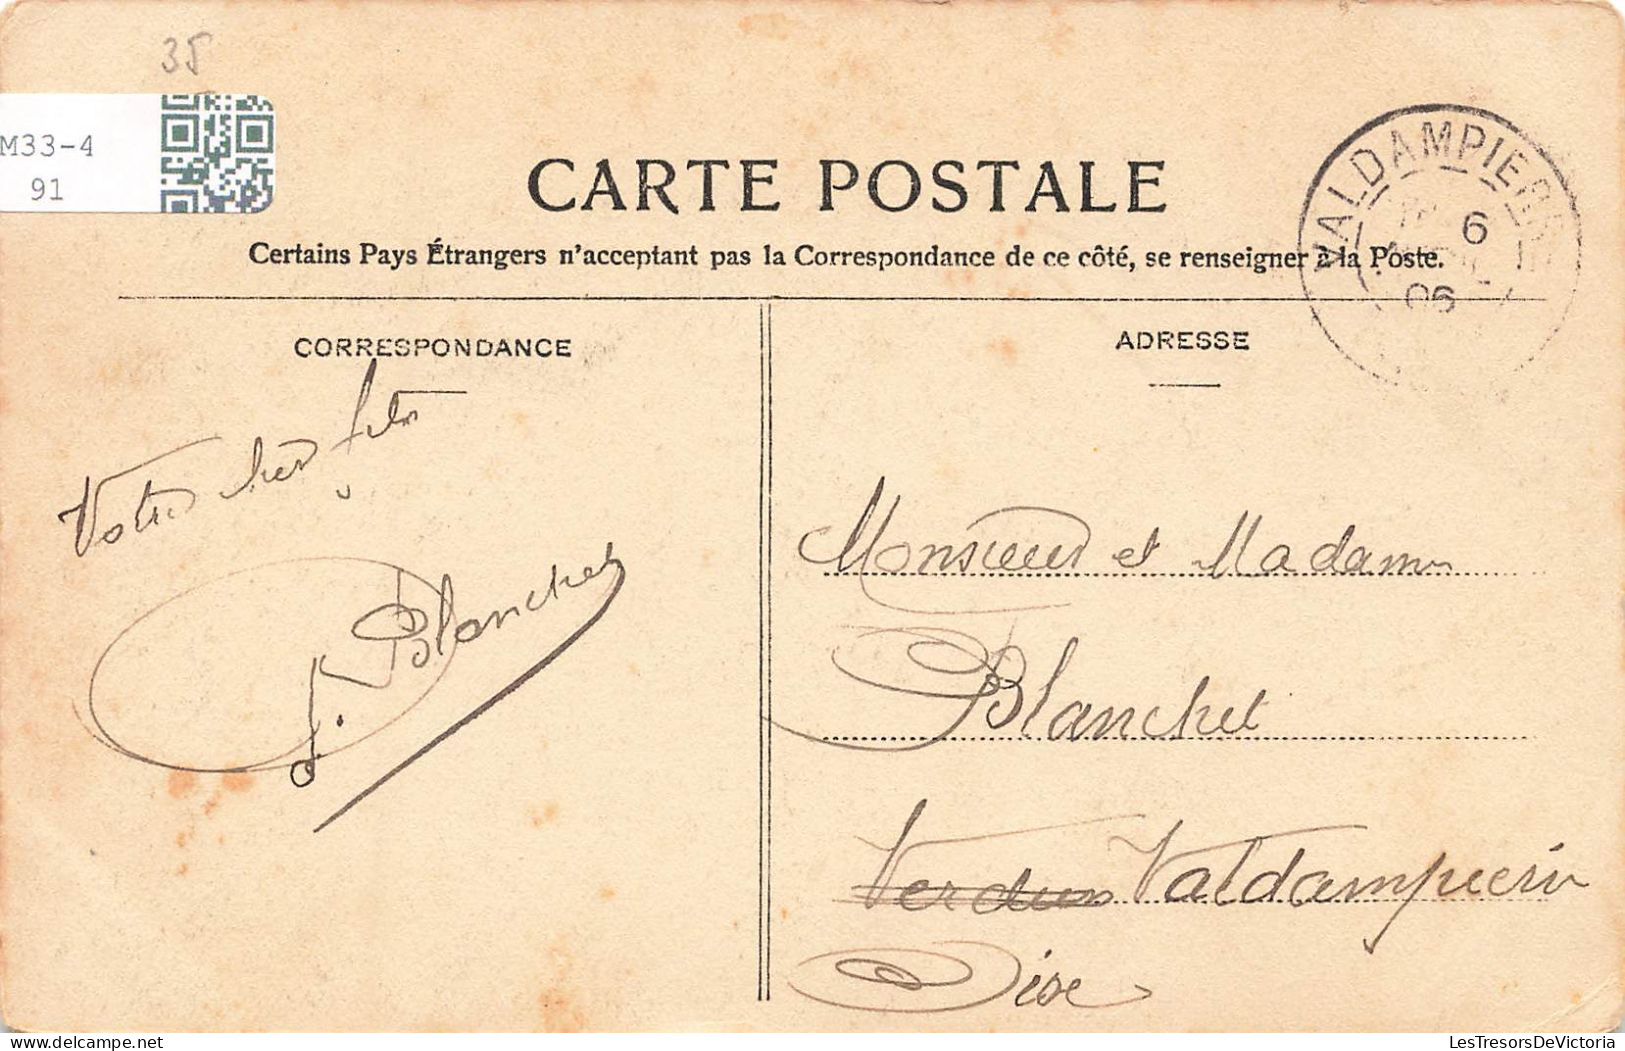 35
M33-4
91
CARTE POSTALE
Certains Pays Étrangers n'acceptant pas la Correspondance de ce côté, se renseigner à la Poste.
VALDAMPIERRE
6
06
CORRESPONDANCE
ADRESSE
Votre cher fils
Blanchet
Monsieur et Madame
Blanchet
Verdun Valdampierre
Oise
LesTresorsDeVictoria